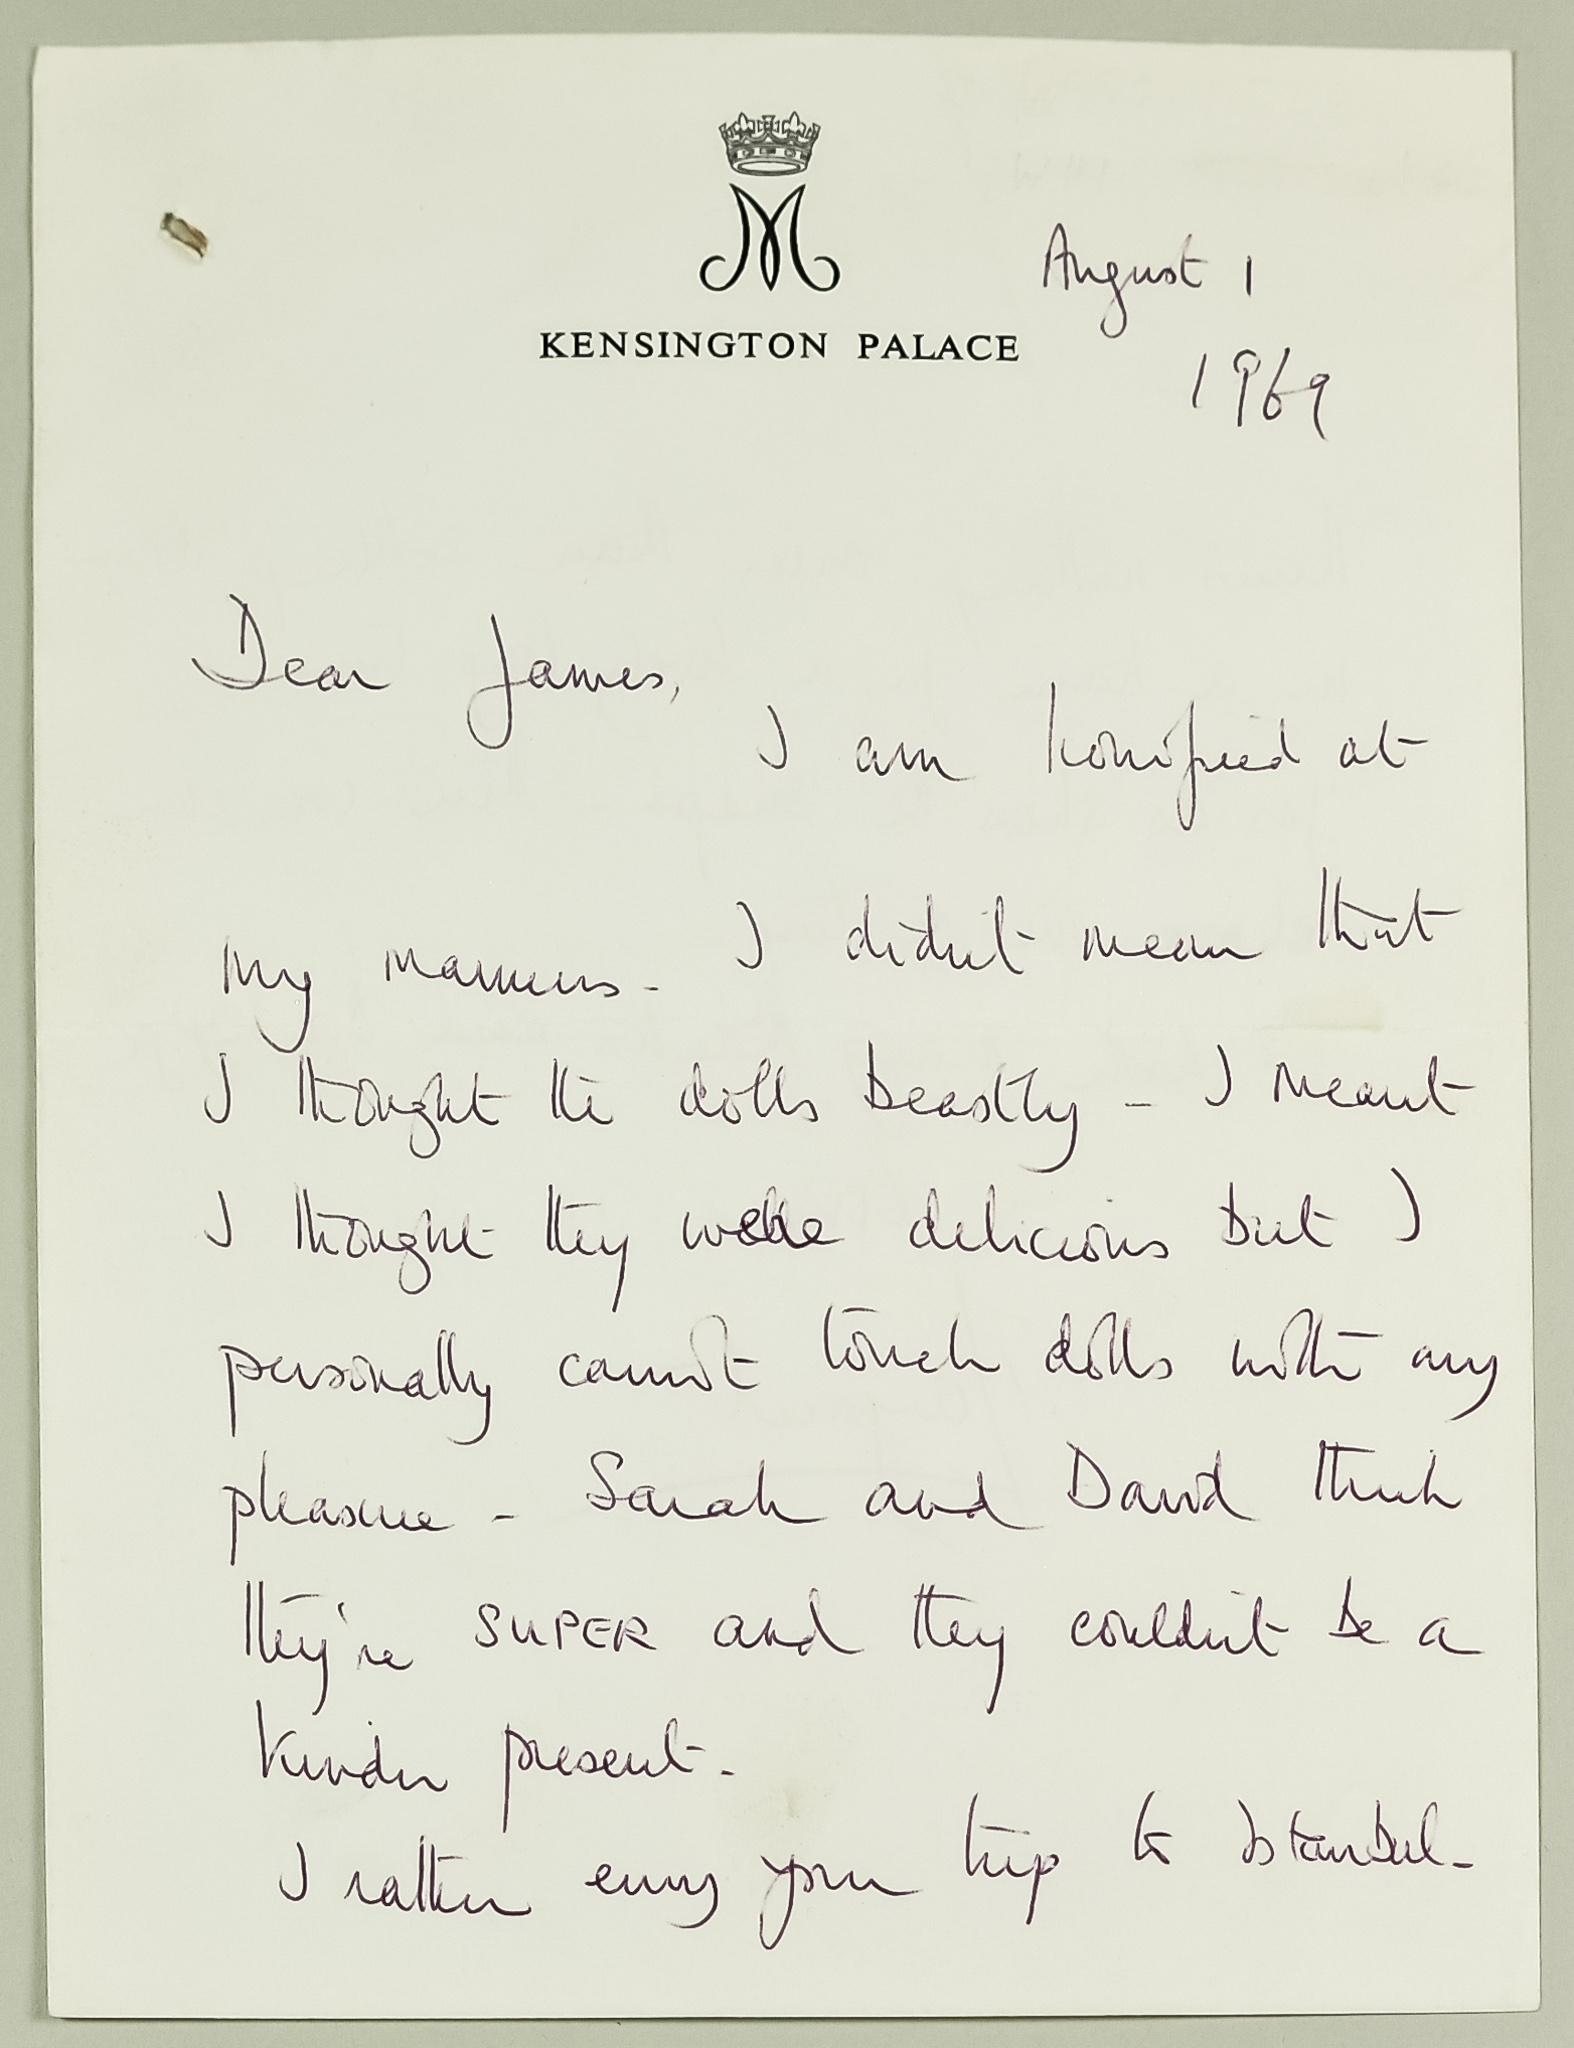 M
KENSINGTON PALACE
August 1
1969
Dear James,
I am horrified at
my manners - I didn't mean that
I thought the dolls beastly - I meant
I thought they were delicious but I
personally cannot touch dolls with any
pleasure - Sarah and David think
they're SUPER and they couldn't be a
kinder present -
I rather envy your trip to Istanbul -